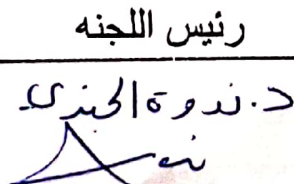 رئيس اللجنه
د. ندوة الجندي